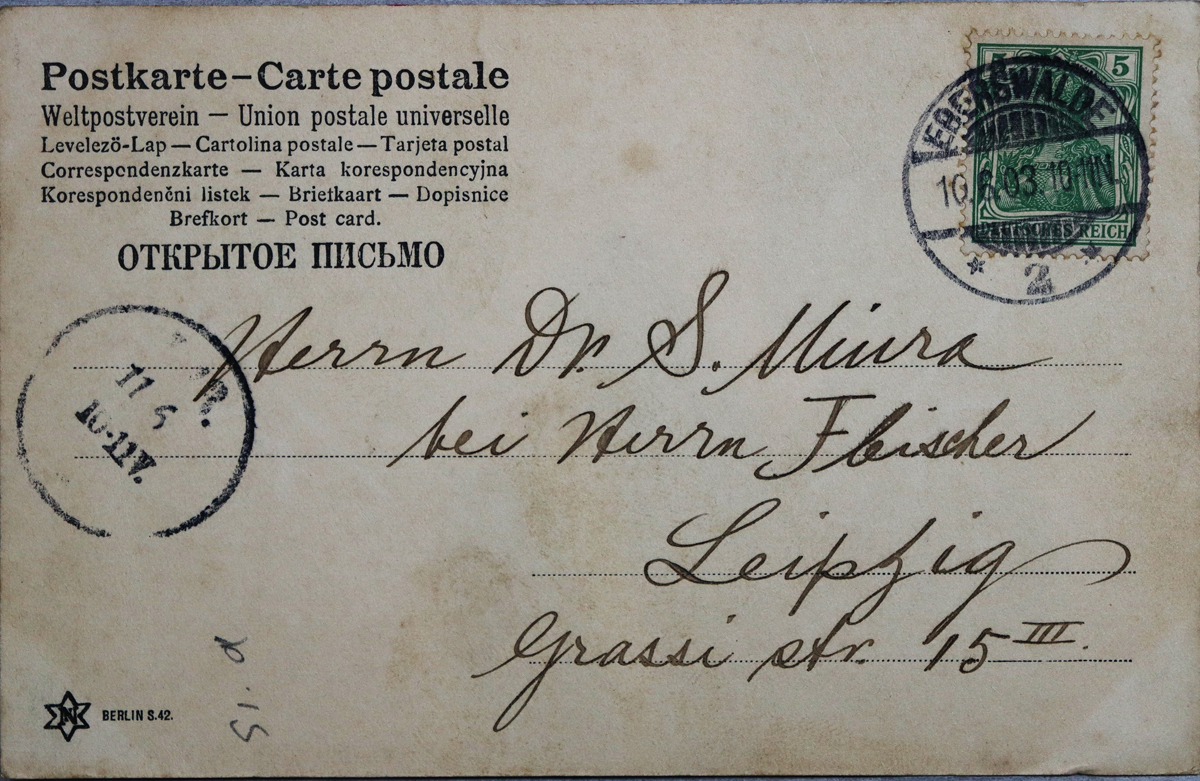 Postkarte – Carte postale
Weltpostverein — Union postale universelle
Levelező-Lap — Cartolina postale — Tarjeta postal
Correspondenzkarte — Karta korespondencyjna
Korespondenčni listek — Briefkaart — Dopisnice
Brefkort — Post card.
ОТКРЫТОЕ ПИСЬМО
5 5
EBERSWALDE
10.6.03. 10-11N.
DEUTSCHES REICH
* 2 *
11 5
10-11V.
Herrn Dr. S. Miura
bei Herrn Fleischer
Leipzig
Grassi str. 15 III.
N BERLIN S.42.